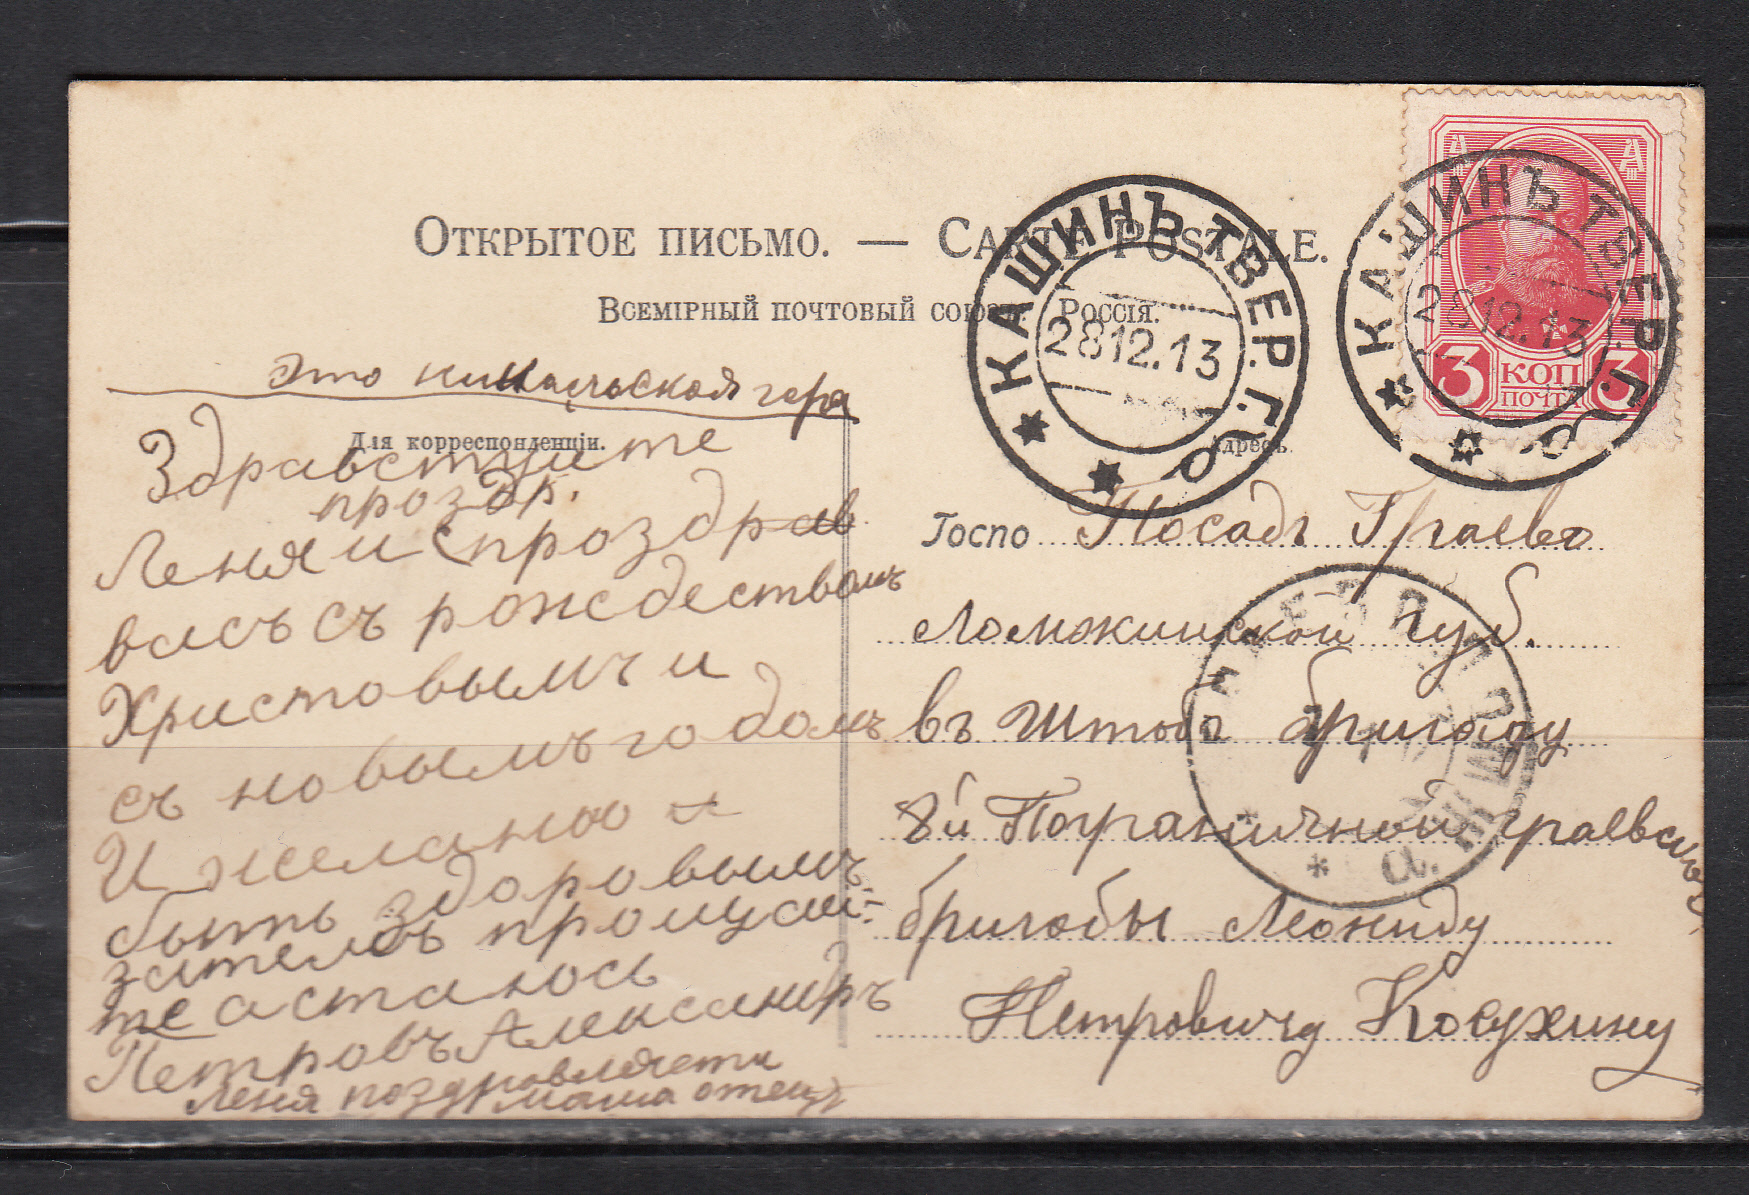 Открытое письмо. — Carte Postale.
Всемірный почтовый союзъ. Россія.
КАШИНЪ ТВЕР. Г.
28 12.13
КАШИНЪ ТВЕР. Г.
28 12.13
3 КОП 3
ПОЧТА
это никольская гора
Для корреспонденціи.
Здравствуйте
проздр.
Леня и спроздрав
васъ съ рождествомъ
Христовымъ и
съ новымъ годомъ
И желаною и
быть здоровымъ
затемъ прощай-
те астаюсь
Петровъ Александръ
Леня поздровляети
маша отецъ
Адресъ.
Госпо Посадъ Граево
Ломжинской Губ.
въ Штабъ бригаду
8й Пограничной граевской
бригобы Леониду
Петровичу Косухину